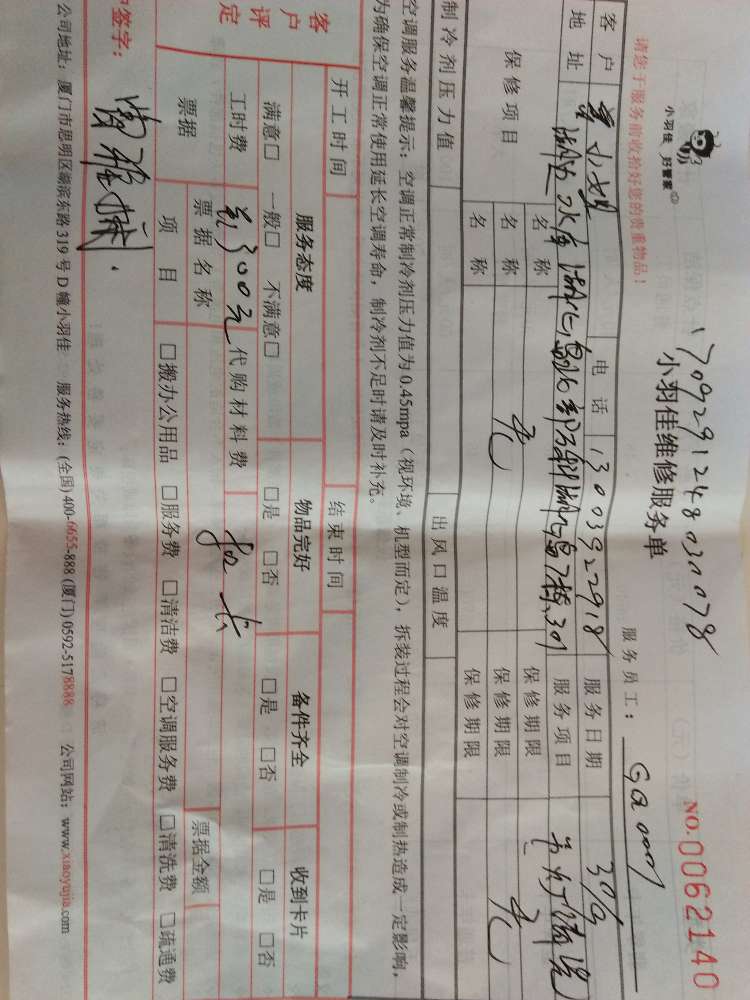 小羽佳 好管家
请您于服务前收拾好您的贵重物品!
1709291248030078
小羽佳维修服务单
NO.0062140
服务员工:
客户 小姐 电话 服务日期 30日
地址 服务项目
保修项目 名称 保修期限
名称 无 保修期限 无
名称 保修期限
制冷剂压力值 出风口温度
空调服务温馨提示:空调正常制冷剂压力值为0.45mpa(视环境、机型而定),拆装过程会对空调制冷或制热造成一定影响,
为确保空调正常使用延长空调寿命,制冷剂不足时请及时补充。
开工时间 结束时间
客户评定 服务态度 物品完好 备件齐全 收到卡片
满意□ 一般□ 不满意□ □是 □否 □是 □否 □是 □否
工时费 300元 代购材料费
票据 票据名称 票据金额
项目 □搬办公用品 □服务费 □清洁费 □空调服务费 □清洗费 □疏通费
户签字:
公司地址:厦门市思明区湖滨东路319号D幢小羽佳 服务热线:(全国)400-6655-888 (厦门)0592-5178888 公司网站:www.xiaoyujia.com